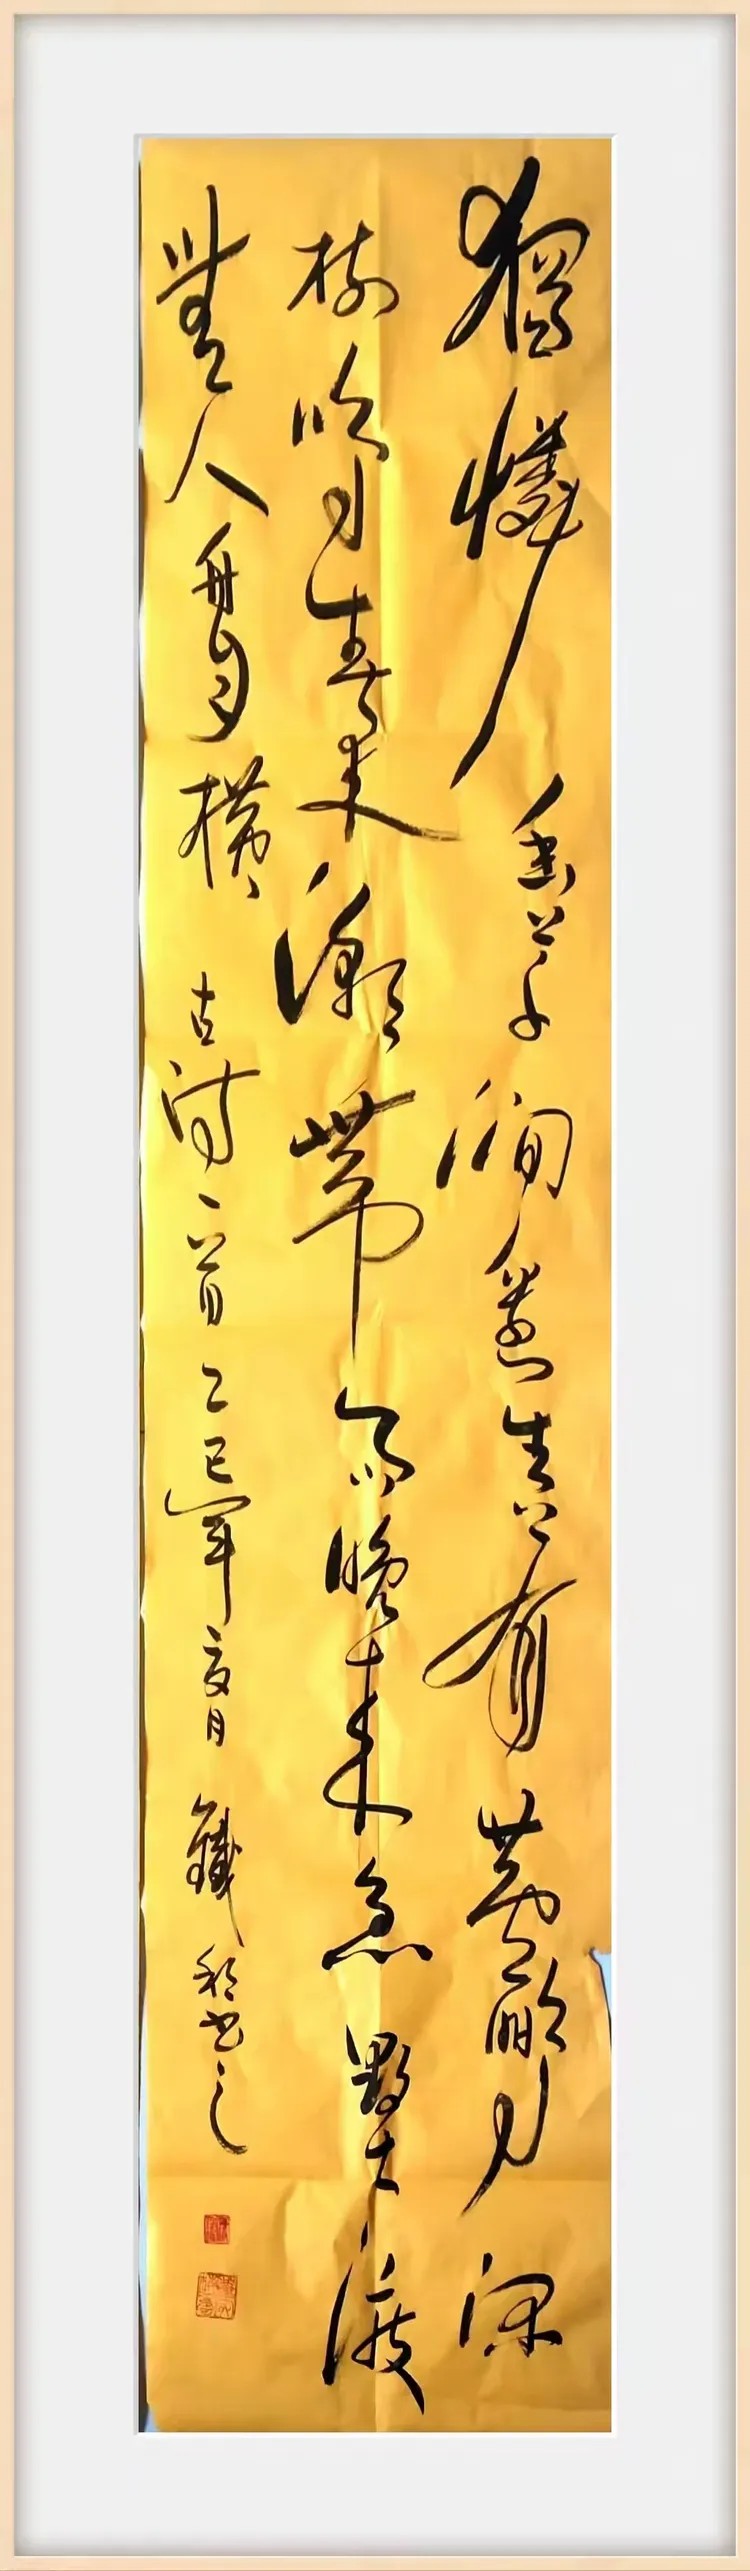 獨憐幽草澗邊生上有黃鸝深
樹鳴春來潮帶雨晚來急野渡
無人舟自橫 古詩一首 乙巳年夏月 鐵書之